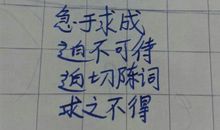 急手求成
迫不可待
迫切陈词
求之不得